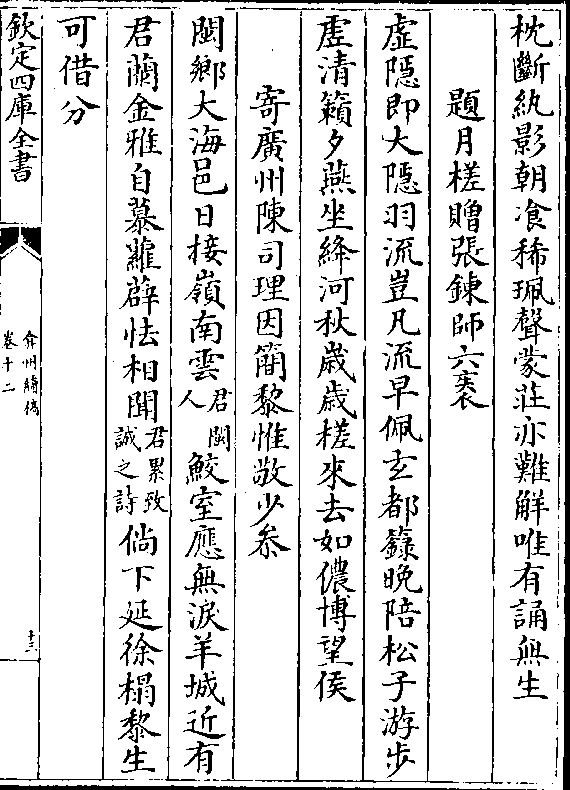 枕斷紈影朝飡稀珮聲蒙莊亦難解唯有誦無生
題月槎贈張鍊師六袠
虛隠即大隠羽流豈凡流早佩𤣥都籙晩陪松子游步
虛清籟夕燕坐絳河秋歳歳槎來去如儂博望侯
寄廣州陳司理因簡黎惟敬少叅
閩鄉大海邑日接嶺南雲君閩人鮫室應無淚羊城近有
君蘭金雅自慕蘿薜怯相聞君累致誠之詩倘下延徐榻黎生
可借分
欽定四庫全書
弇州續稿
卷十二
十三